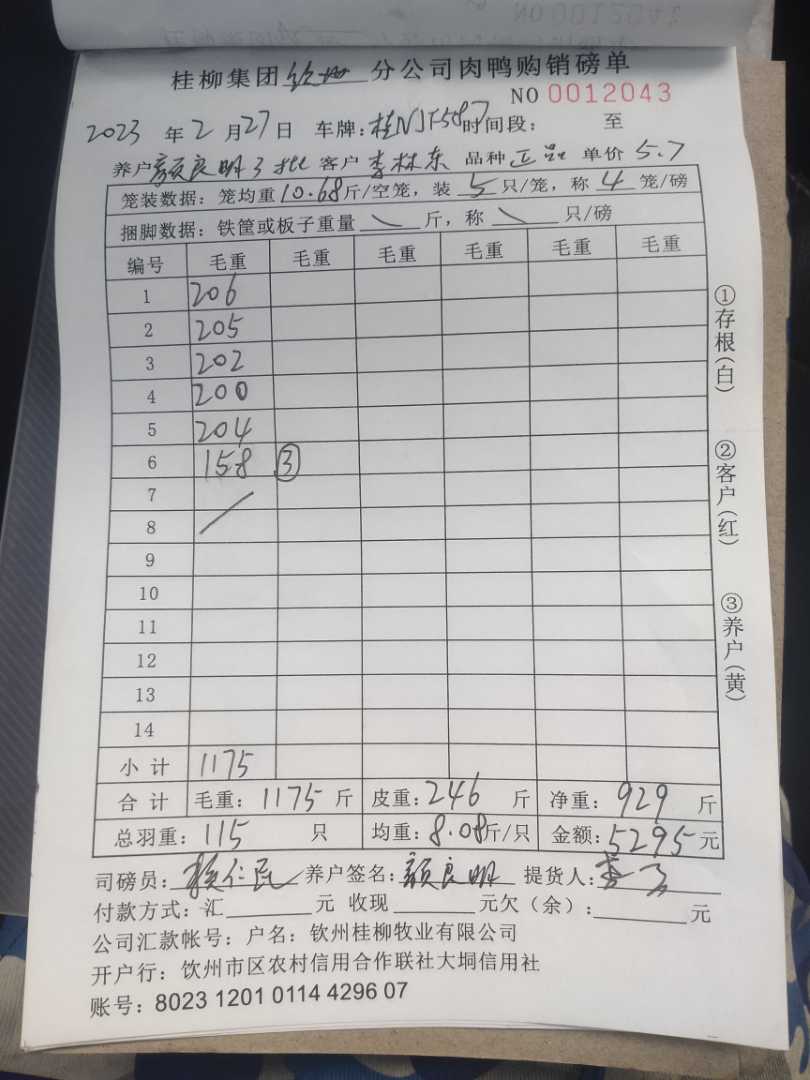 桂柳集团钦州分公司肉鸭购销磅单
NO 0012043
2023 年 2 月 27 日 车牌: 桂NJF587 时间段: 至
养户 颜良明3批 客户 李林东 品种 正品 单价 5.7
笼装数据: 笼均重 10.68 斤/空笼, 装 5 只/笼, 称 4 笼/磅
捆脚数据: 铁筐或板子重量 \ 斤, 称 \ 只/磅
编号 毛重 毛重 毛重 毛重 毛重 毛重
1 206
2 205
3 202
4 200
5 204
6 158 ③
7
8 /
9
10
11
12
13
14
小计 1175
合计 毛重: 1175 斤 皮重: 246 斤 净重: 929 斤
总羽重: 115 只 均重: 8.08 斤/只 金额: 5295 元
司磅员: 养户签名: 颜良明 提货人: 李
付款方式: 汇 元 收现 元欠(余): 元
公司汇款帐号: 户名: 钦州桂柳牧业有限公司
开户行: 饮州市区农村信用合作联社大垌信用社
账号: 8023 1201 0114 4296 07
①存根(白)
②客户(红)
③养户(黄)